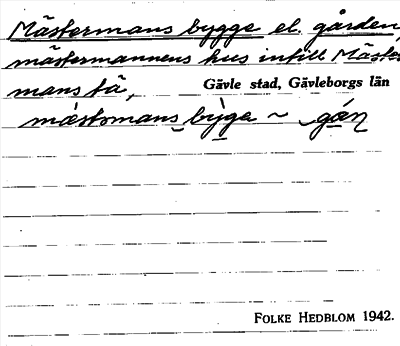 Mästermans bygge el. gården,
mästermannens hus intill Mäster
mans tä,
Gävle stad, Gävleborgs län
mæstəmans byge ~
FOLKE HEDBLOM 1942.